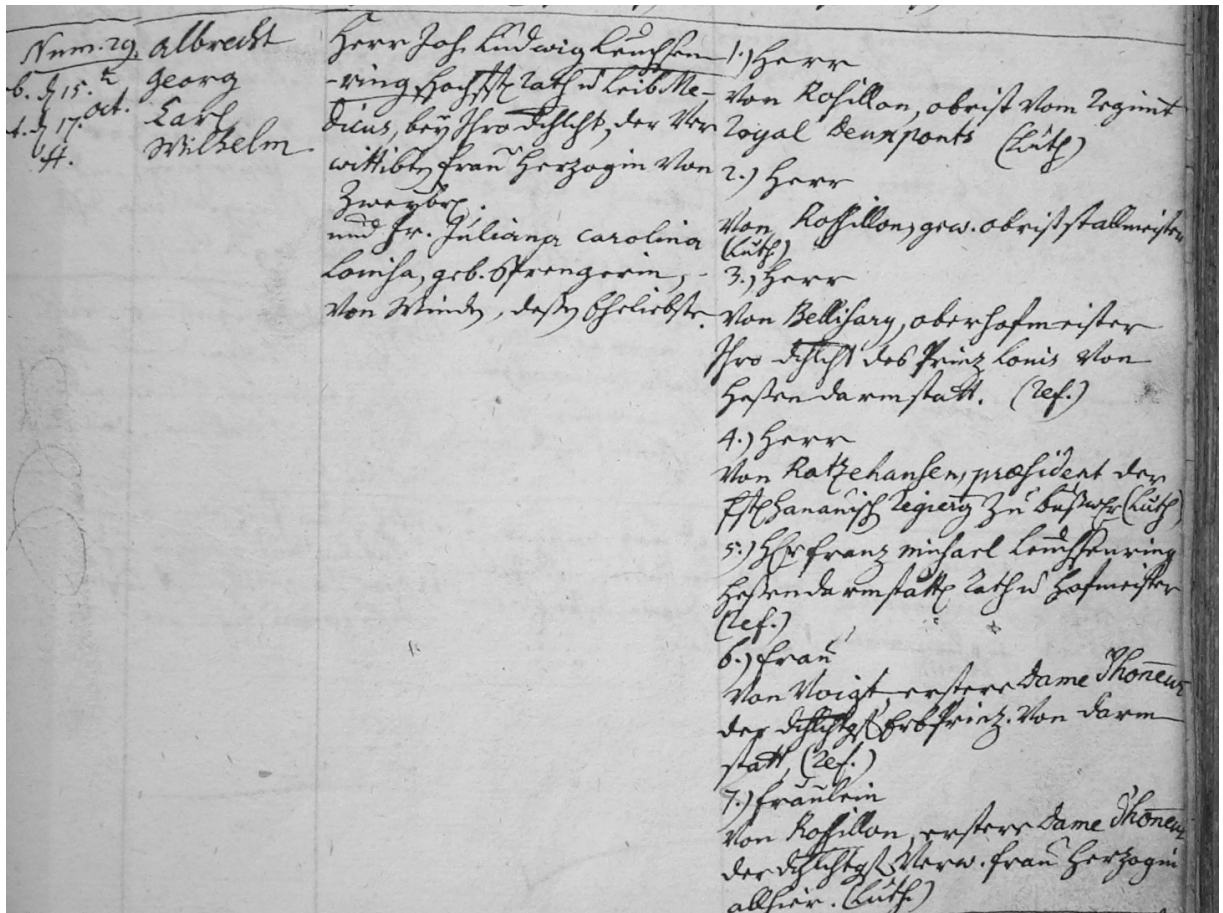 Num. 29.
b. d. 15.t
t. d. 17. oct.
Albrecht
Georg
Carl
Wilhelm
Herr Joh. Ludwig Leuchsen-
-ring, Hochfstl. Rath u Leib Me-
dicus, bey Ihro dhlcht, der Ver-
wittibten Frau Herzogin von
Zweybr.
und Fr. Juliana Carolina
Louisa, geb. Sprengerin,
von Minden, deßen Eheliebste.
1.) Herr
Von Rosillon, obrist vom Regimt
Royal Deuxponts (Luth)
2.) Herr
Von Rossillon, gew. obriststallmeister
(Luth)
3.) Herr
Von Bellisary, oberhofmeister
Ihro dhlcht des Prinz Louis von
Heßendarmstatt. (Ref.)
4.) Herr
Von Ratzehausen, præsident der
fstl Hanauisch Regierg zu Bußwlr (Luth)
5.) Herr Franz Michael Leuchsenring
Heßendarmstatt. Rath u Hofmeister
(Ref.)
6.) Frau
Von Voigt, erstere Dame
der Erbprinz. von Darm-
statt, (Ref.)
7.) Fräulein
Von Rossillon, erstere Dame
der Verw. Frau Herzogin
allhier. (Luth.)